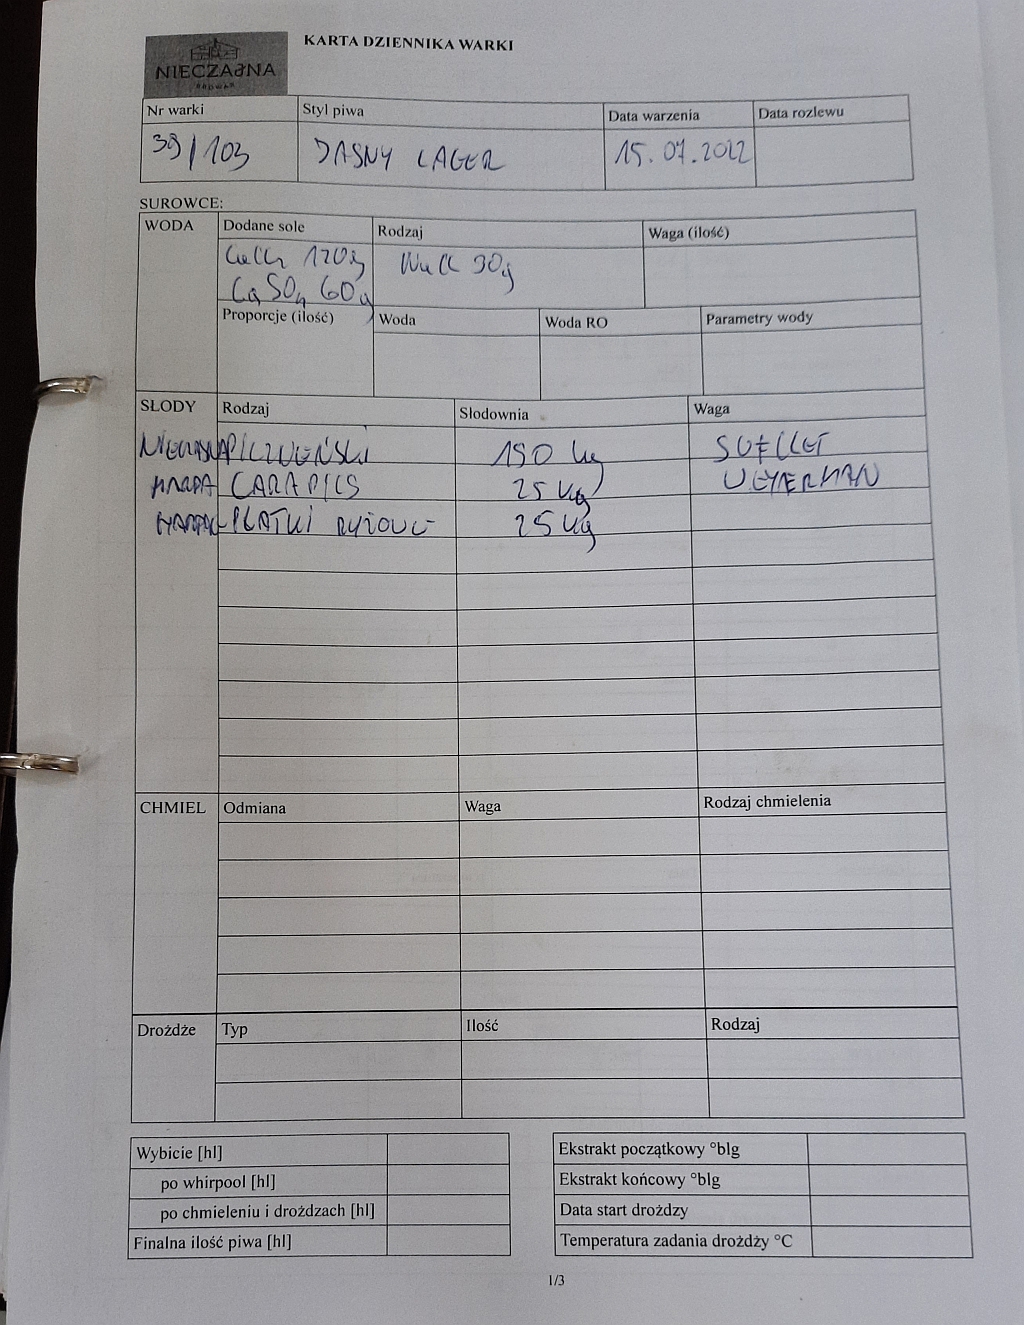 NIECZAJNA
BROWAR
KARTA DZIENNIKA WARKI
Nr warki Styl piwa Data warzenia Data rozlewu
39/103 JASNY LAGER 15.07.2022
SUROWCE:
WODA Dodane sole Rodzaj Waga (ilość)
120g 30g
CaSO4 60g
Proporcje (ilość) Woda Woda RO Parametry wody
SŁODY Rodzaj Słodownia Waga
PILZNEŃSKI 150 kg SUFLLET
CARAPILS 25 kg WEYERMAN
PŁATKI RYŻOWE 25 kg
CHMIEL Odmiana Waga Rodzaj chmielenia
Drożdże Typ Ilość Rodzaj
Wybicie [hl] Ekstrakt początkowy °blg
po whirpool [hl] Ekstrakt końcowy °blg
po chmieleniu i drożdzach [hl] Data start drożdzy
Finalna ilość piwa [hl] Temperatura zadania drożdży °C
1/3